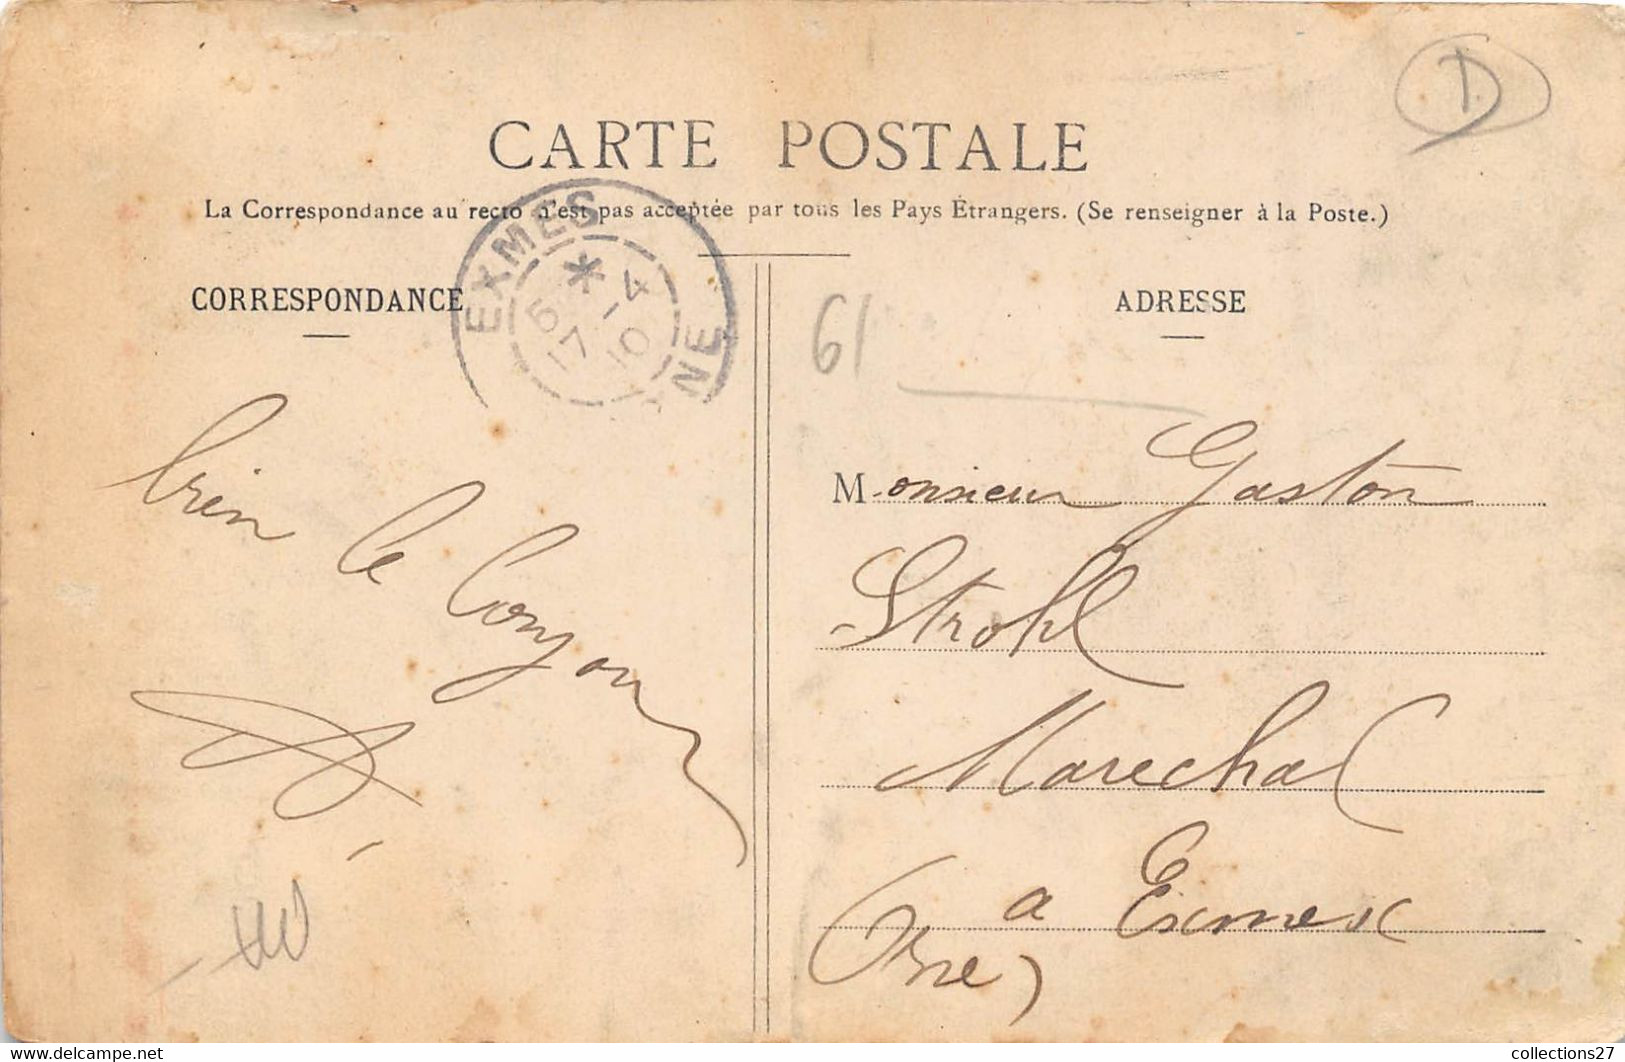 D
CARTE POSTALE
La Correspondance au recto n'est pas acceptée par tous les Pays Étrangers. (Se renseigner à la Poste.)
EXMES
NE
5 * 4
17 10
CORRESPONDANCE
ADRESSE
61
bien le bonjour
Monsieur Gaston
Strohl
Marechal
a Exmes
Orne)
https://www.delcampe.net
collections27